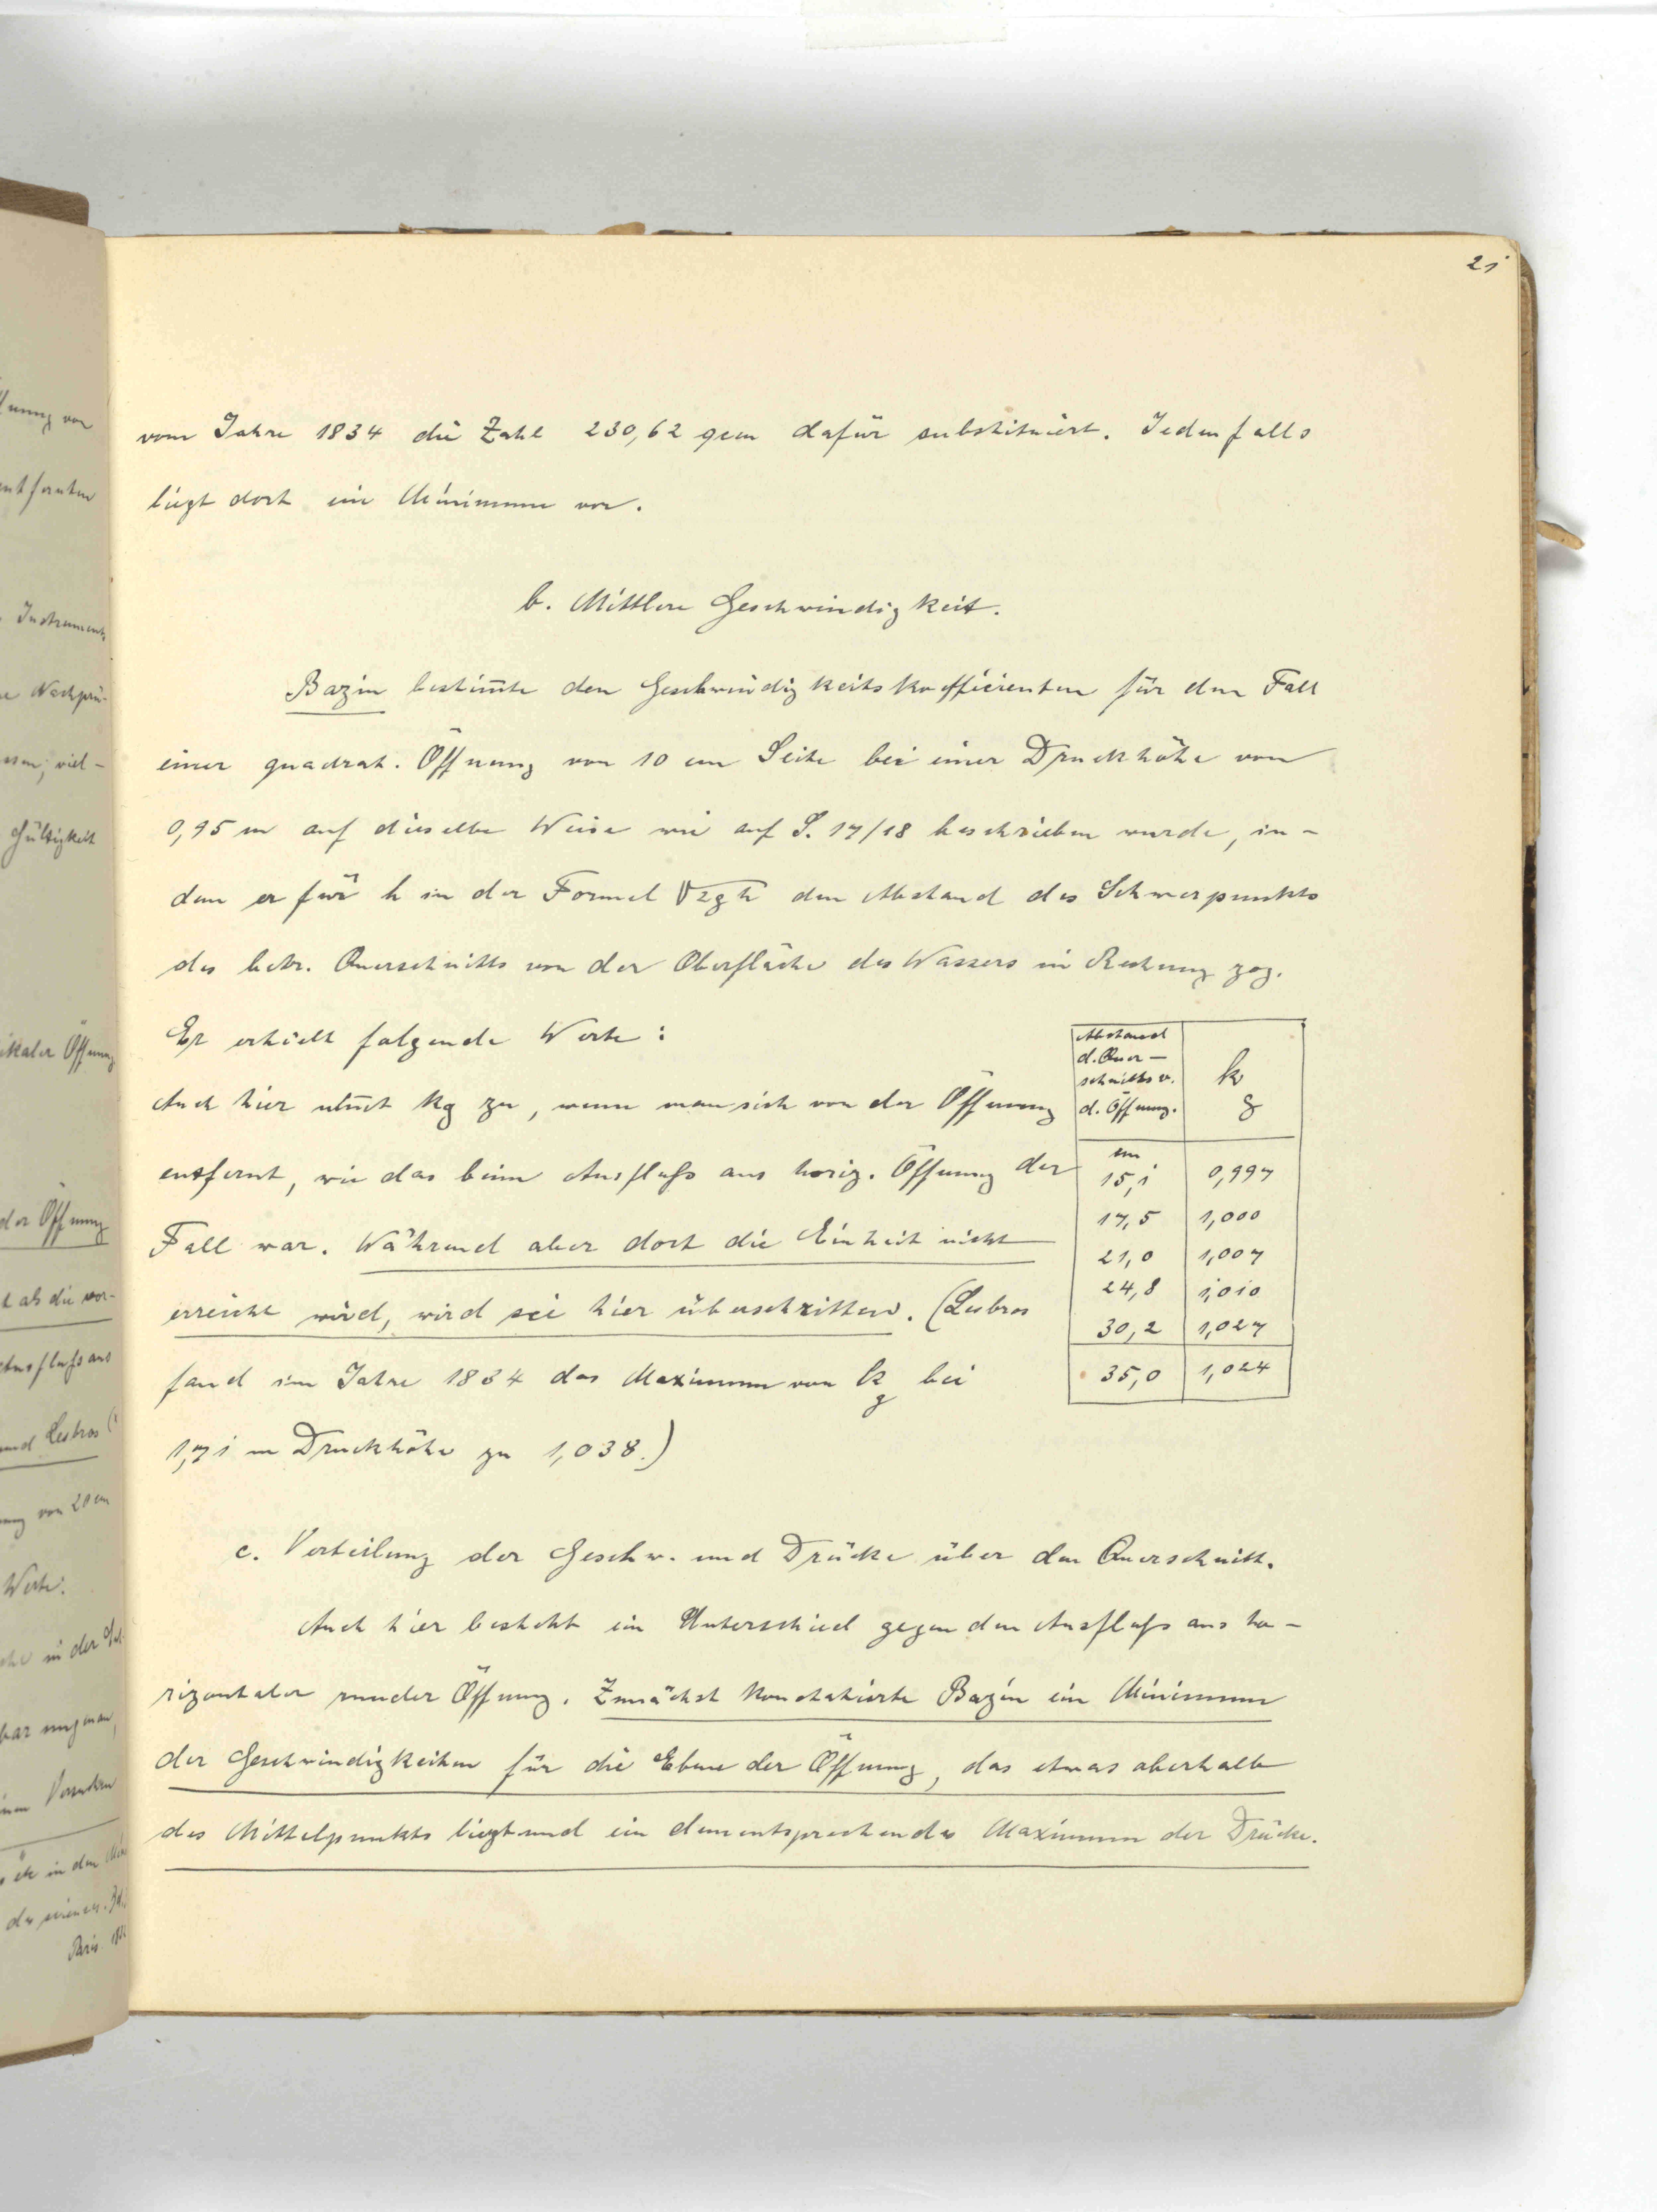 21
vom Jahre 1834 die Zahl 230,62 qcm dafür substituiert. Jedenfalls
liegt dort ein Minimum vor.
b. Mittlere Geschwindigkeit.
Bazin bestim̄te den Geschwindigkeitskoefficienten für den Fall
einer quadrat. Öffnung von 10 cm Seite bei einer Druckhöhe von
0,95 m auf dieselbe Weise wie auf S. 17/18 beschrieben wurde, in-
dem er für h in der Formel √2gh den Abstand des Schwerpunkts
des betr. Querschnitts von der Oberfläche des Wassers in Rechnung zog.
Er erhielt folgende Werte:
Auch hier nim̄t kg zu, wenn man sich von der Öffnung
entfernt, wie das beim Ausfluſs aus horiz. Öffnung der
Fall war. Während aber dort die Einheit nicht
erreicht wird, wird sie hier überschritten. (Lesbros
fand im Jahre 1834 das Maximum von kg bei
1,71 m Druckhöhe zu 1,038.)
Abstand
d. Quer-
schnitts v.
d. Öffnung.
kg
cm
15,1 0,997
17,5 1,000
21,0 1,007
24,8 1,010
30,2 1,027
35,0 1,024
c. Verteilung der Geschw. und Drücke über den Querschnitt.
Auch hier besteht ein Unterschied gegen den Ausfluſs aus ho-
rizontaler runder Öffnung. Zunächst konstatierte Bazin ein Minimum
der Geschwindigkeiten für die Ebene der Öffnung, das etwas oberhalb
des Mittelpunkts liegt und ein dementsprechendes Maximum der Drücke.